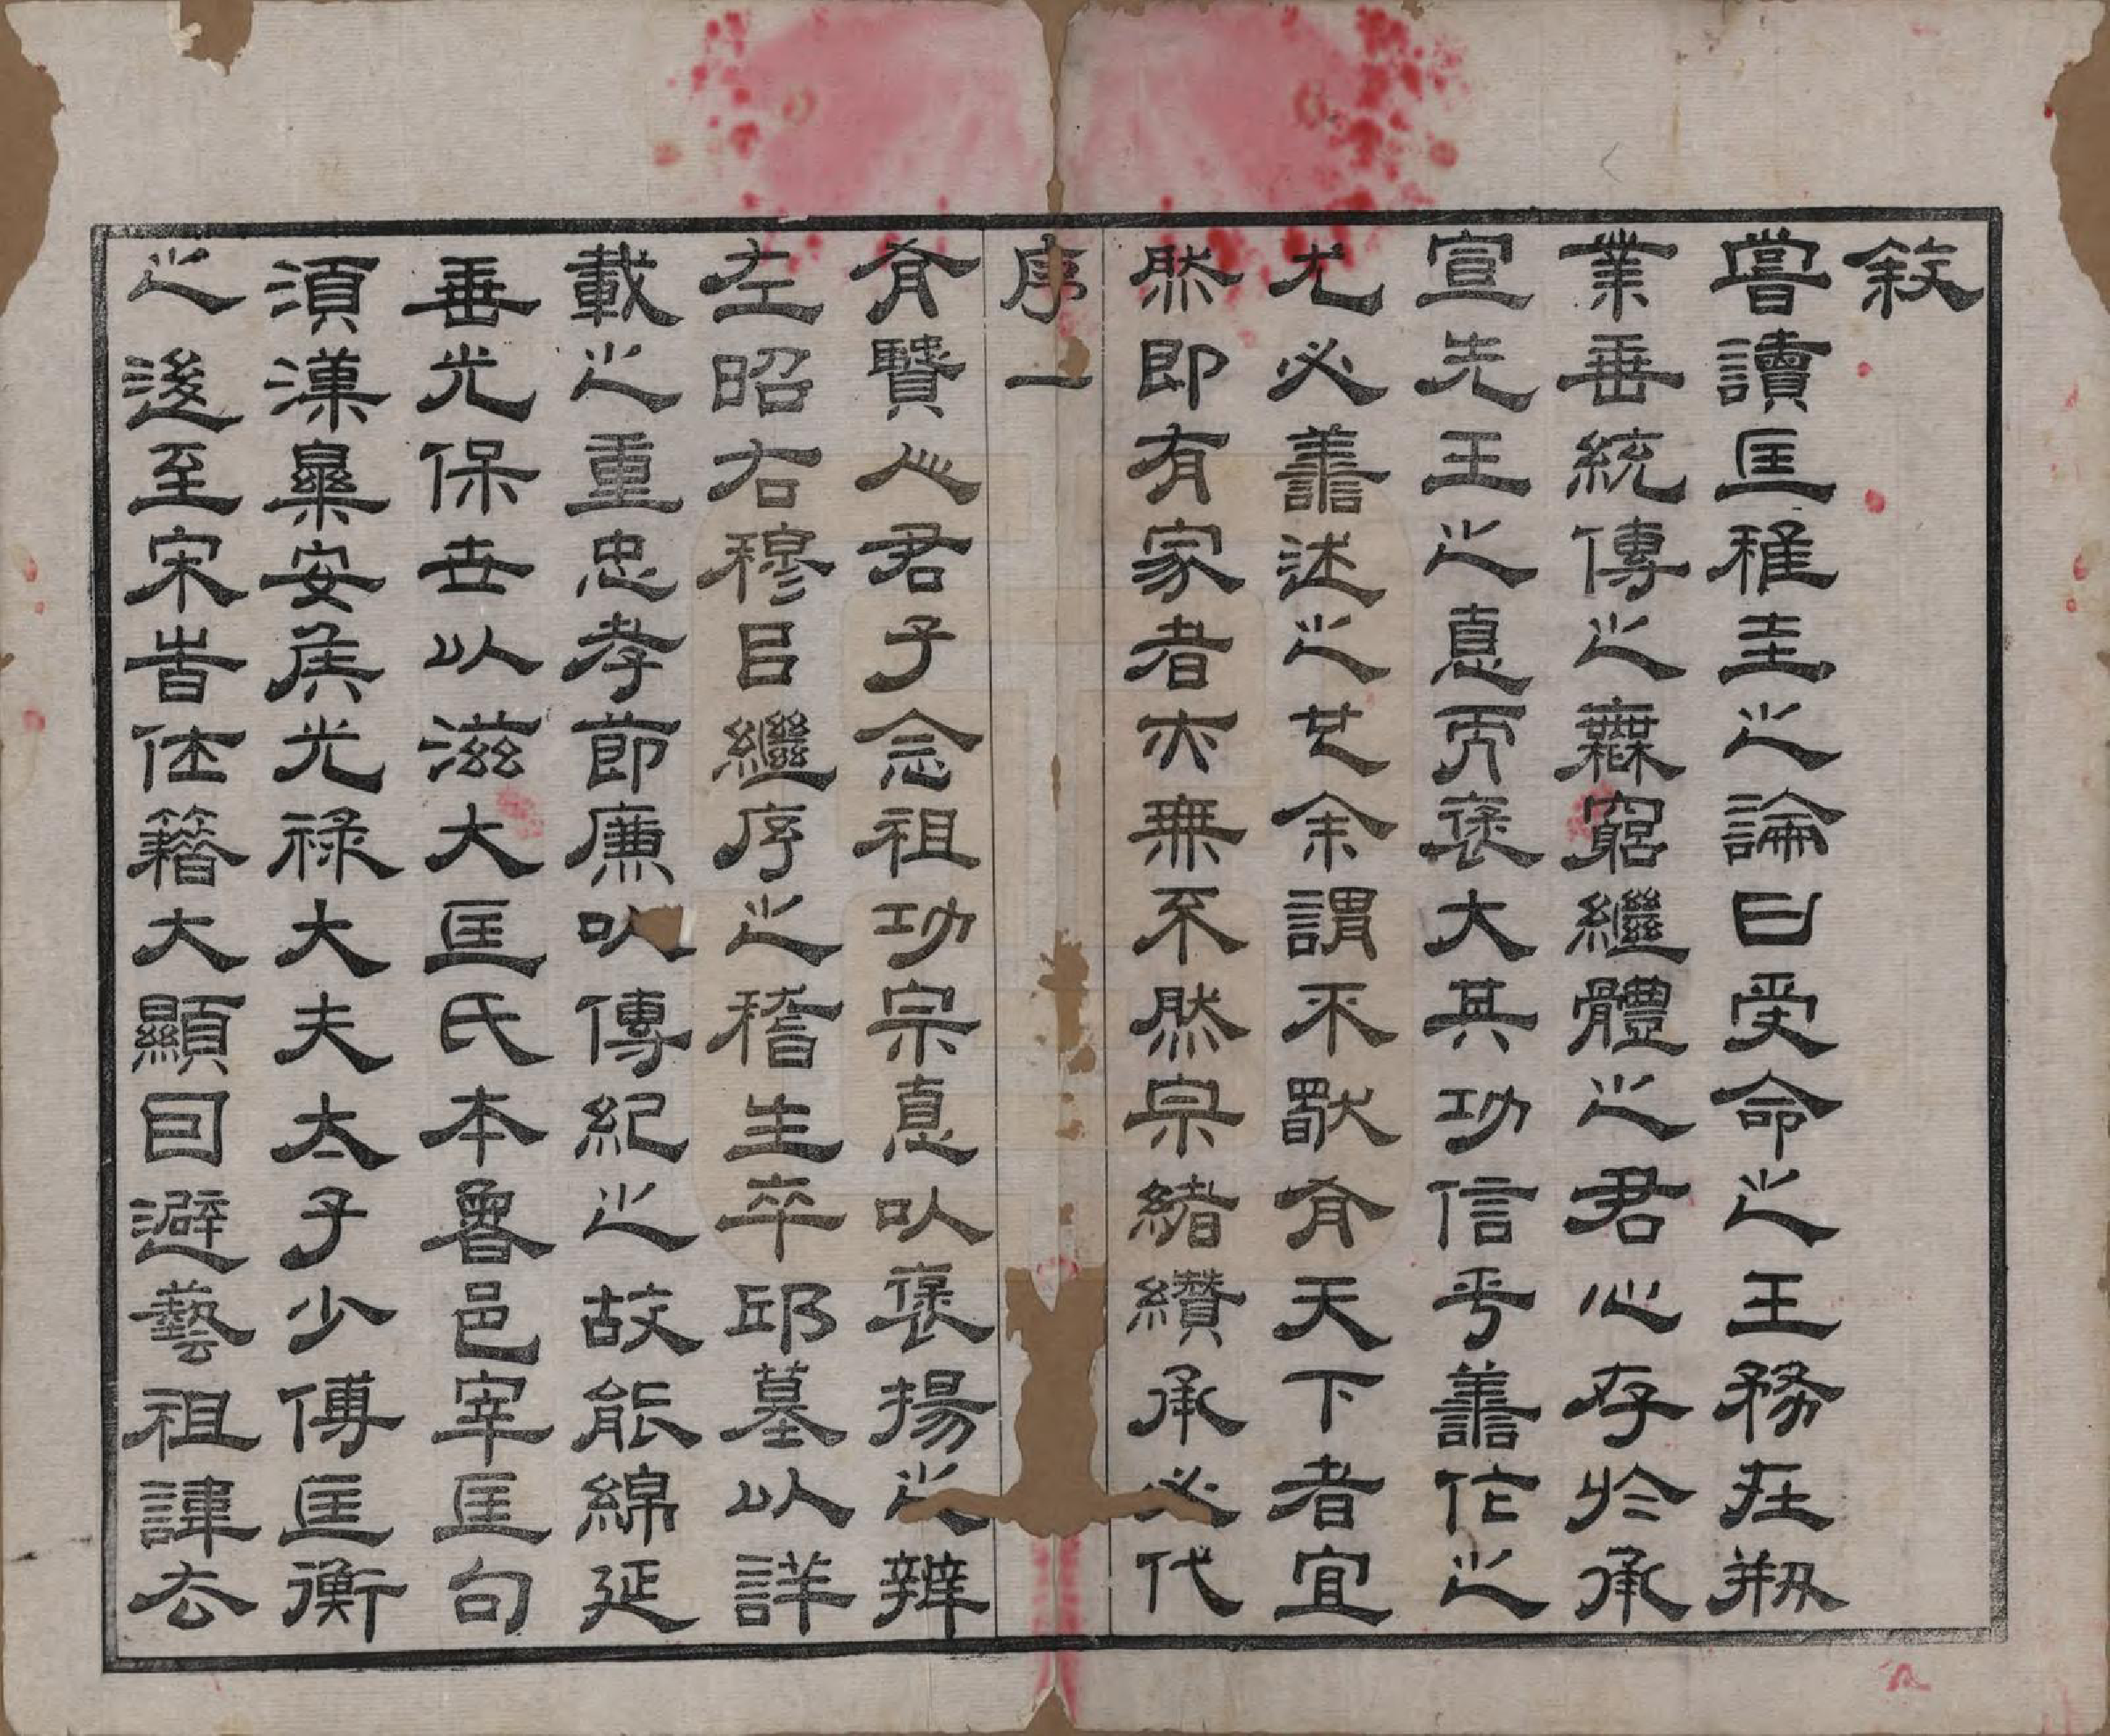 敘
嘗讀匡稚圭之論曰受命之王務在剏
業垂統傳之無窮繼體之君心存於承
宣先王之悳而褒大其功信乎善作之
尤必善述之也余謂不獸有天下者宜
然即有家者亦無不然宗緒纘承必代
序一
有賢人君子念祖功宗悳以褒揚之辨
左昭右穆㠯繼序之稽生卒邱墓以詳
載之重忠孝節廉以傳紀之故能綿延
垂光保世以滋大匡氏本魯邑宰匡句
須漢樂安侯光祿大夫太子少傅匡衡
之後至宋時仕籍大顯因避藝祖諱去